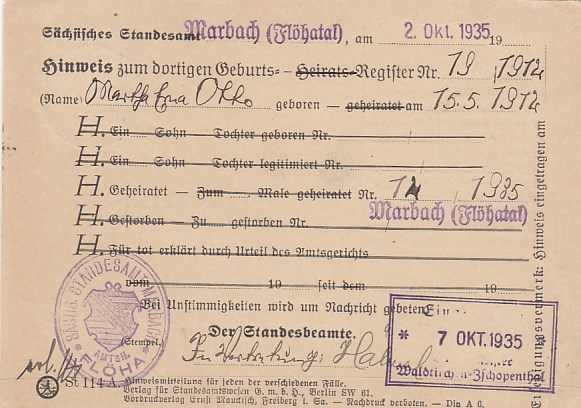 Sächsisches Standesamt Marbach (Flöhatal), am 2. Okt. 1935 19
Hinweis zum dortigen Geburts-= Heirats-Register Nr. 19, 1912
(Name) Martha Erna Otto geboren — geheiratet am 15.5.1912
H. Ein Sohn — Tochter geboren Nr.
H. Ein Sohn — Tochter legitimiert Nr.
H. Geheiratet — Zum Male geheiratet Nr. 14, 1935
Marbach (Flöhatal)
H. Gestorben — Zu gestorben Nr.
H. Für tot erklärt durch Urteil des Amtsgerichts
vom 19 seit dem 19
Bei Unstimmigkeiten wird um Nachricht gebeten
Der Standesbeamte.
Stempel.
In Vertretung:
SÄCHS. STANDESAMT MARBACH
AMTSH. FLÖHA
* 7 OKT. 1935 *
Waldkirchen-Zschopenthal
Erledigungsvermerk: Hinweis eingetragen am
St 114 A. Hinweismitteilung für jeden der verschiedenen Fälle.
Verlag für Standesamtswesen G. m. b. H., Berlin SW 61.
Vordruckverlag Ernst Mauckisch, Freiberg i. Sa. — Nachdruck verboten. — Din A 6.